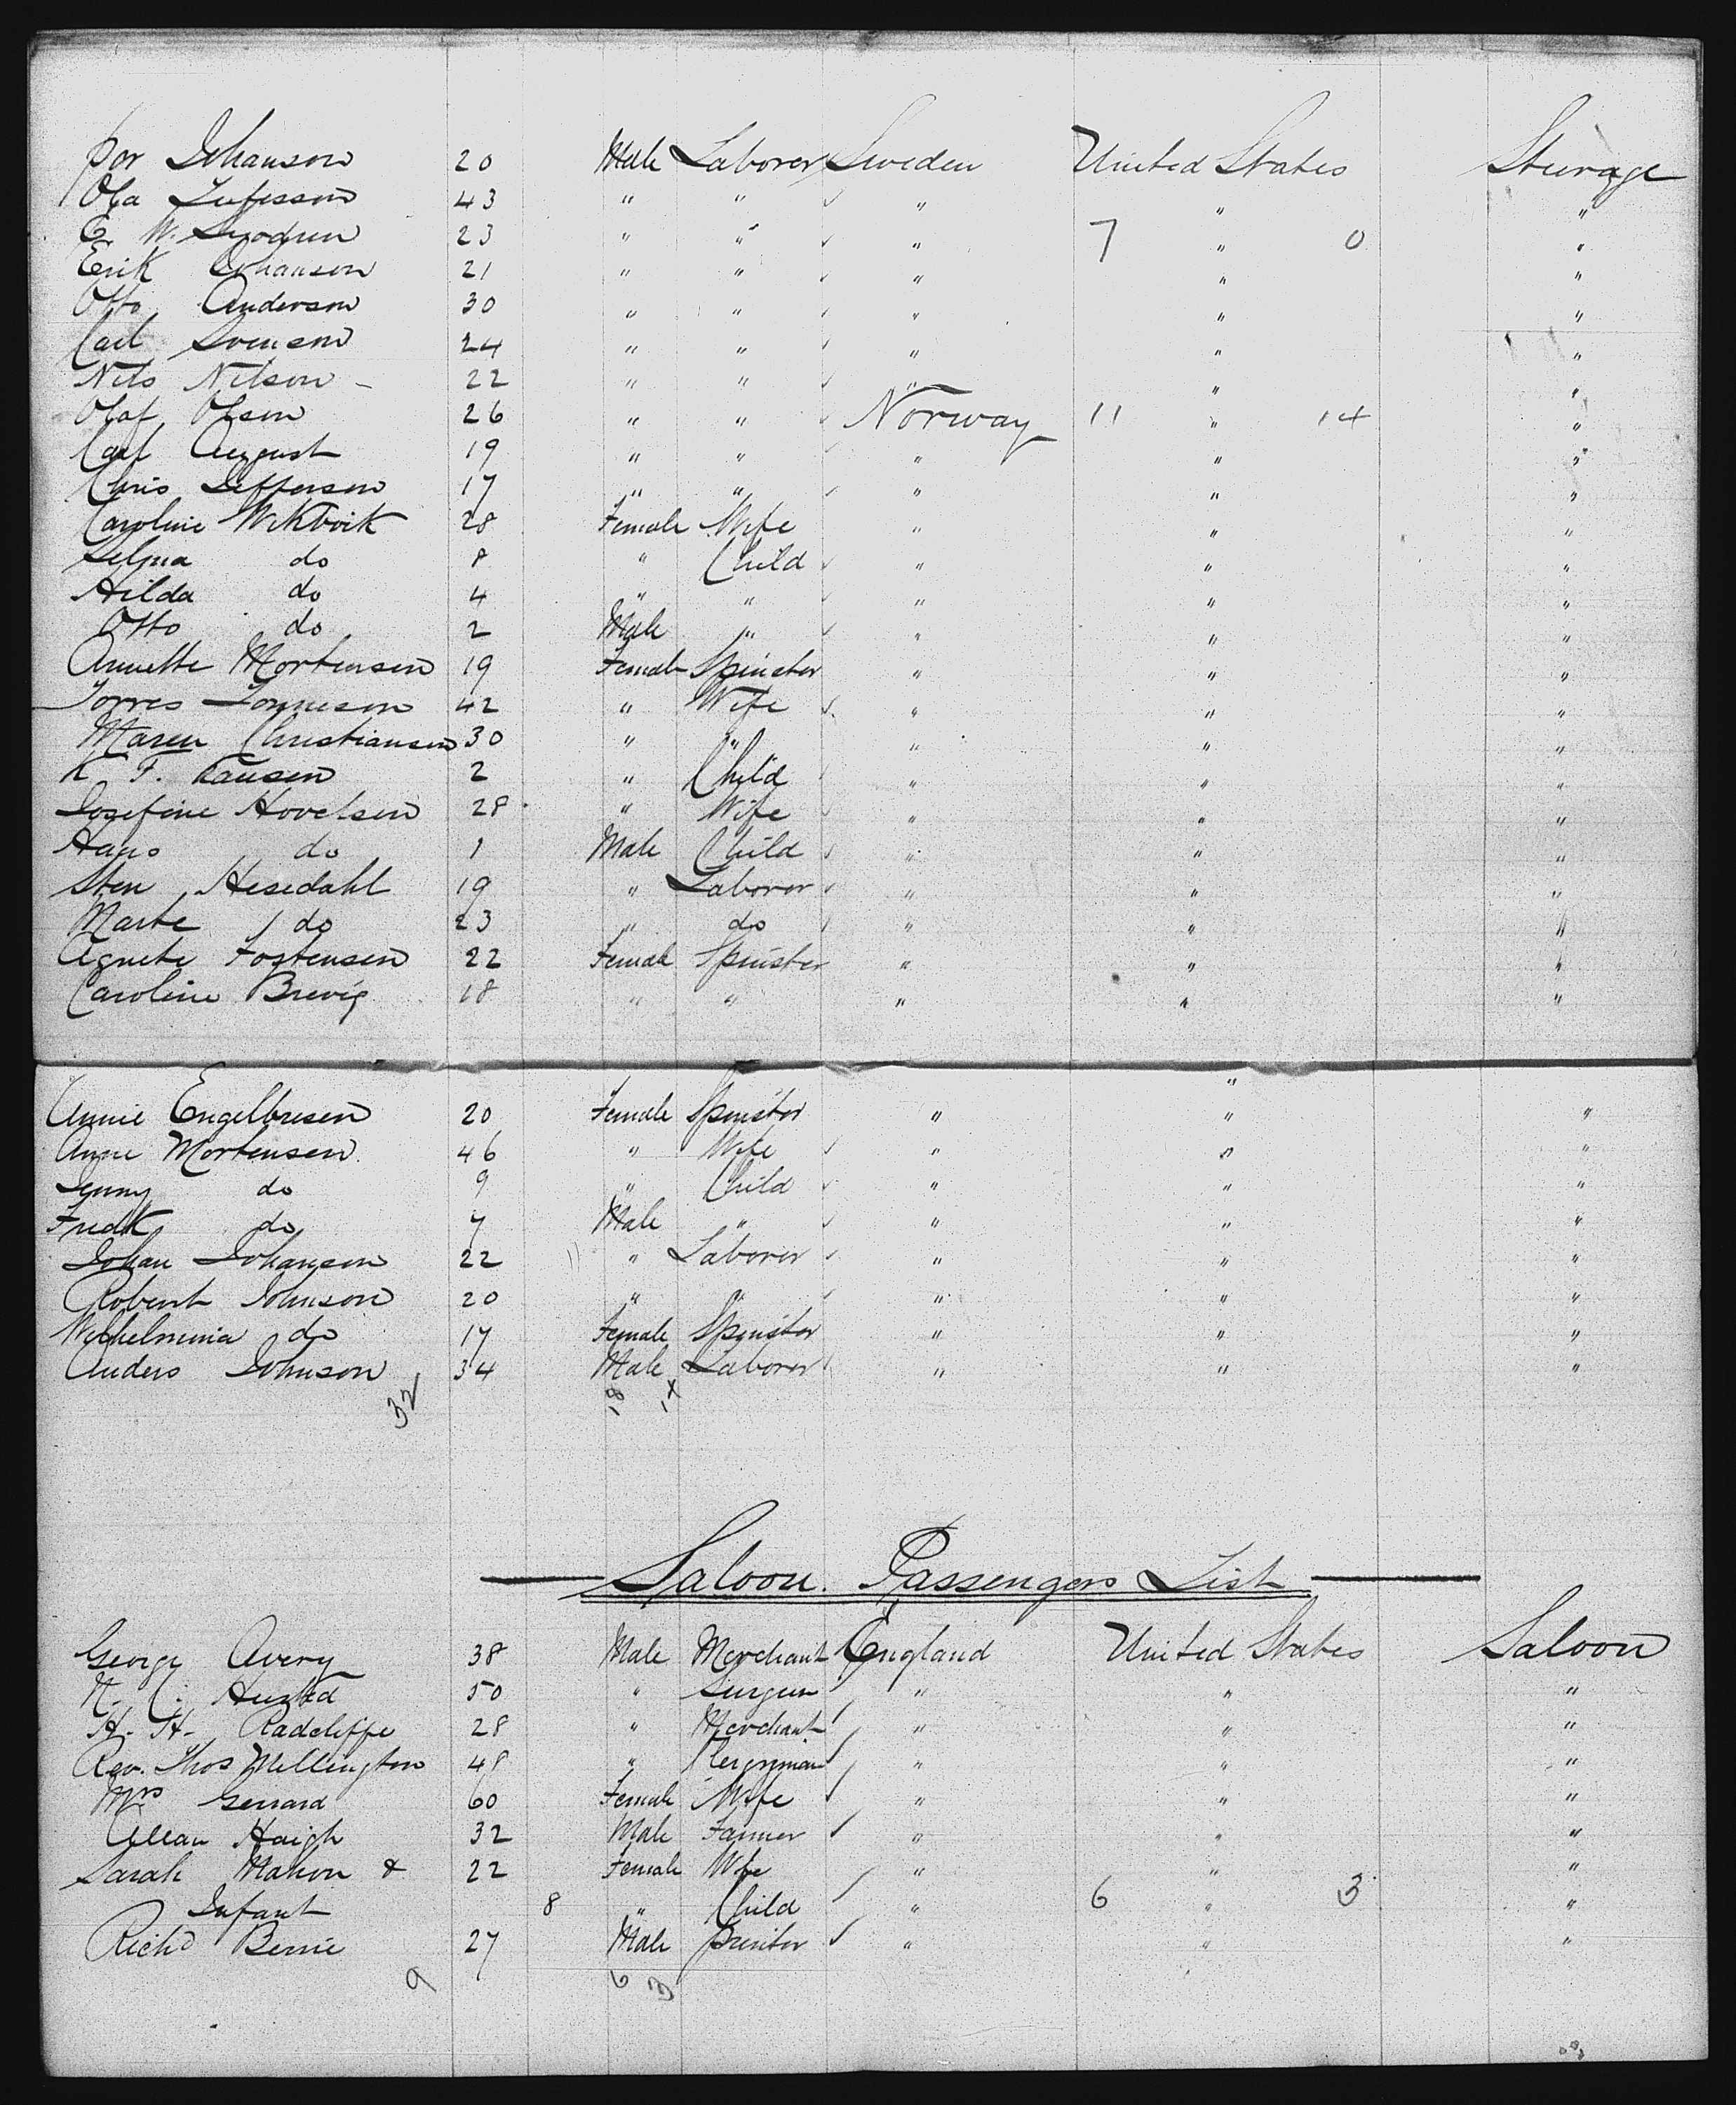 Por Johanson 20 Male Laborer Sweden United States Steerage
Ola 43 " " " " "
C. W. 23 " " " 7 " 0 "
Erik Johanson 21 " " " " "
Otto Anderson 30 " " " " "
Carl Svenson 24 " " " " "
Nils Nilson - 22 " " " " "
Olaf Olson 26 " " Norway 11 " 14 "
Carl August 19 " " " " "
Chris Jefferson 17 " " " " "
Caroline Wiktvik 28 Female Wife " " "
Selma do 8 " Child " " "
Hilda do 4 " " " " "
Otto do 2 Male " " " "
Annette Mortensen 19 Female Spinster " " "
Torres 42 " Wife " " "
Maren Christiansen 30 " " " " "
K. F. Hansen 2 " Child " " "
Josefine Hovelsen 28 " Wife " " "
Hans do 1 Male Child " " "
Sten Hesedahl 19 " Laborer " " "
Marte do 23 " do " " "
Agnete Tostensen 22 Female Spinster " " "
Caroline Brevig 18 " " " " "
"
Annie Engelbresen 20 Female Spinster " " "
Anne Mortensen 46 " Wife " " "
Jenny do 9 " Child " " "
Fredk do 7 Male " " " "
Johan Johansen 22 11 " Laborer " " "
Robert Johnson 20 " " " " "
Wilhelminia do 17 Female Spinster " " "
Anders Johnson 34 Male Laborer " " "
32 18 14
Saloon Passengers List
George Avery 38 Male Merchant England United States Saloon
N. C. Husted 50 " Surgeon " " "
H. H. Radcliffe 28 " Merchant " " "
Rev. Thos Millington 48 " Clergyman " " "
Mrs Gerrard 60 Female Wife " " "
Allan Haigh 32 Male Farmer " " "
Sarah Mahon & 22 Female Wife " " "
Infant 8 " Child " 6 " 3 "
Richd Bernie 27 Male Printer " " "
9 6 3